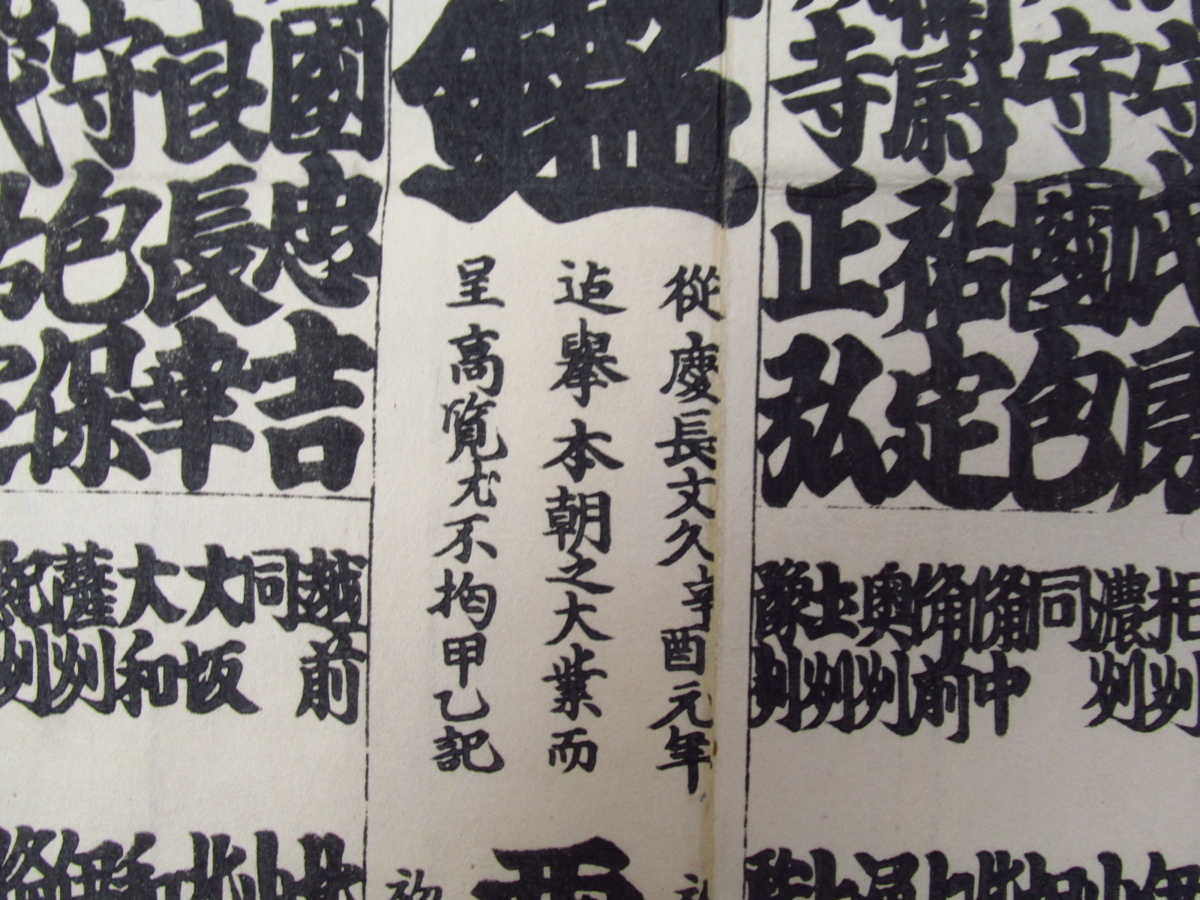 守氏房
守國包
尉祐定
寺正弘
鑑
從慶長文久辛酉元年
迠擧本朝之大業而
呈高覧尤不拘甲乙記
國忠吉
良長幸
守包保
州
濃州
同
備中
備前
奥州
土州
豫州
越前
同
大坂
大和
薩州
紀州